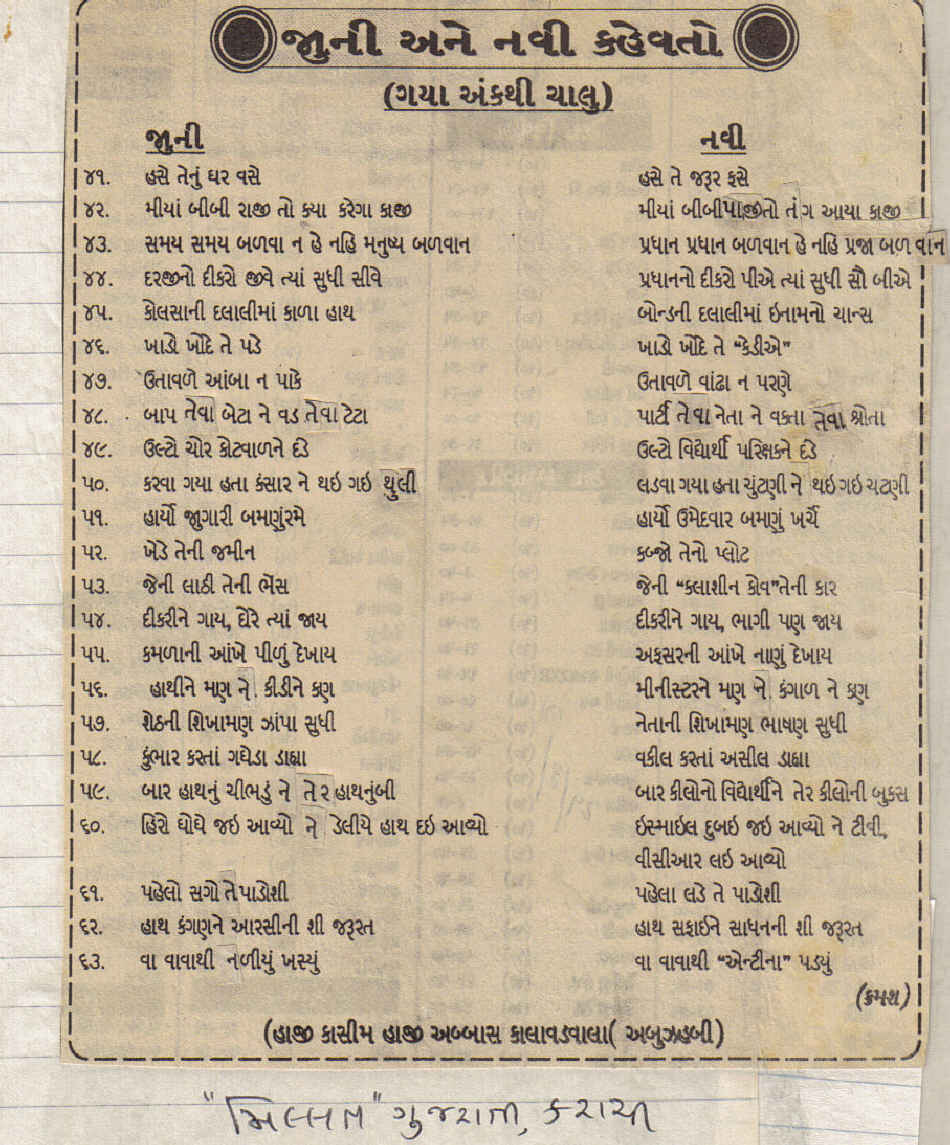 જુની અને નવી કહેવતો
(ગયા અંકથી ચાલુ)
જુની નવી
૪૧. હસે તેનું ઘર વસે હસે તે જરૂર ફસે
૪૨. મીયાં બીબી રાજી તો ક્યા કરેગા કાજી મીયાં બીબીપાજીતો તંગ આયા કાજી
૪૩. સમય સમય બળવા ન હે નહિ મનુષ્ય બળવાન પ્રધાન પ્રધાન બળવાન હે નહિ પ્રજા બળવાન
૪૪. દરજીનો દીકરો જીવે ત્યાં સુધી સીવે પ્રધાનનો દીકરો પીએ ત્યાં સુધી સૌ બીએ
૪૫. કોલસાની દલાલીમાં કાળા હાથ બોન્ડની દલાલીમાં ઇનામનો ચાન્સ
૪૬. ખાડો ખોદે તે પડે ખાડો ખોદે તે “કેડીએ”
૪૭. ઉતાવળે આંબા ન પાકે ઉતાવળે વાંઢા ન પરણે
૪૮. બાપ તેવા બેટા ને વડ તેવા ટેટા પાર્ટી તેવા નેતા ને વક્તા તેવા શ્રોતા
૪૯. ઉલ્ટો ચોર કોટવાળને દંડે ઉલ્ટો વિદ્યાર્થી પરિક્ષકને દંડે
૫૦. કરવા ગયા હતા કંસાર ને થઇ ગઇ થુલી લડવા ગયા હતા ચુંટણી ને થઇ ગઇ ચટણી
૫૧. હાર્યો જુગારી બમણુંરમે હાર્યો ઉમેદવાર બમણું ખર્ચે
૫૨. ખેડે તેની જમીન કબ્જો તેનો પ્લોટ
૫૩. જેની લાઠી તેની ભેંસ જેની “કલાશીન કોવ”તેની કાર
૫૪. દીકરીને ગાય, દોરે ત્યાં જાય દીકરીને ગાય, ભાગી પણ જાય
૫૫. કમળાની આંખે પીળું દેખાય અફસરની આંખે નાણું દેખાય
૫૬. હાથીને મણ ને કીડીને કણ મીનીસ્ટરને મણ ને કંગાળ ને કણ
૫૭. શેઠની શિખામણ ઝાંપા સુધી નેતાની શિખામણ ભાષણ સુધી
૫૮. કુંભાર કરતાં ગધેડા ડાહ્યા વકીલ કરતાં અસીલ ડાહ્યા
૫૯. બાર હાથનું ચીભડું ને તેર હાથનુંબી બાર કીલોનો વિદ્યાર્થીને તેર કીલોની બુક્સ
૬૦. હિરો ઘોઘે જઇ આવ્યો ને ડેલીયે હાથ દઇ આવ્યો ઇસ્માઇલ દુબઇ જઇ આવ્યો ને ટીવી,
વીસીઆર લઇ આવ્યો
૬૧. પહેલો સગો તે પાડોશી પહેલા લડે તે પાડોશી
૬૨. હાથ કંગણને આરસીની શી જરૂરત હાથ સફાઈને સાધનની શી જરૂરત
૬૩. વા વાવાથી નળીયું ખસ્યું વા વાવાથી “એન્ટીના” પડયું
(ક્રમશ)
(હાજી કાસીમ હાજી અબ્બાસ કાલાવડવાલા( અબુઝહબી)
"મિલ્લત" ગુજરાતી, કરાચી